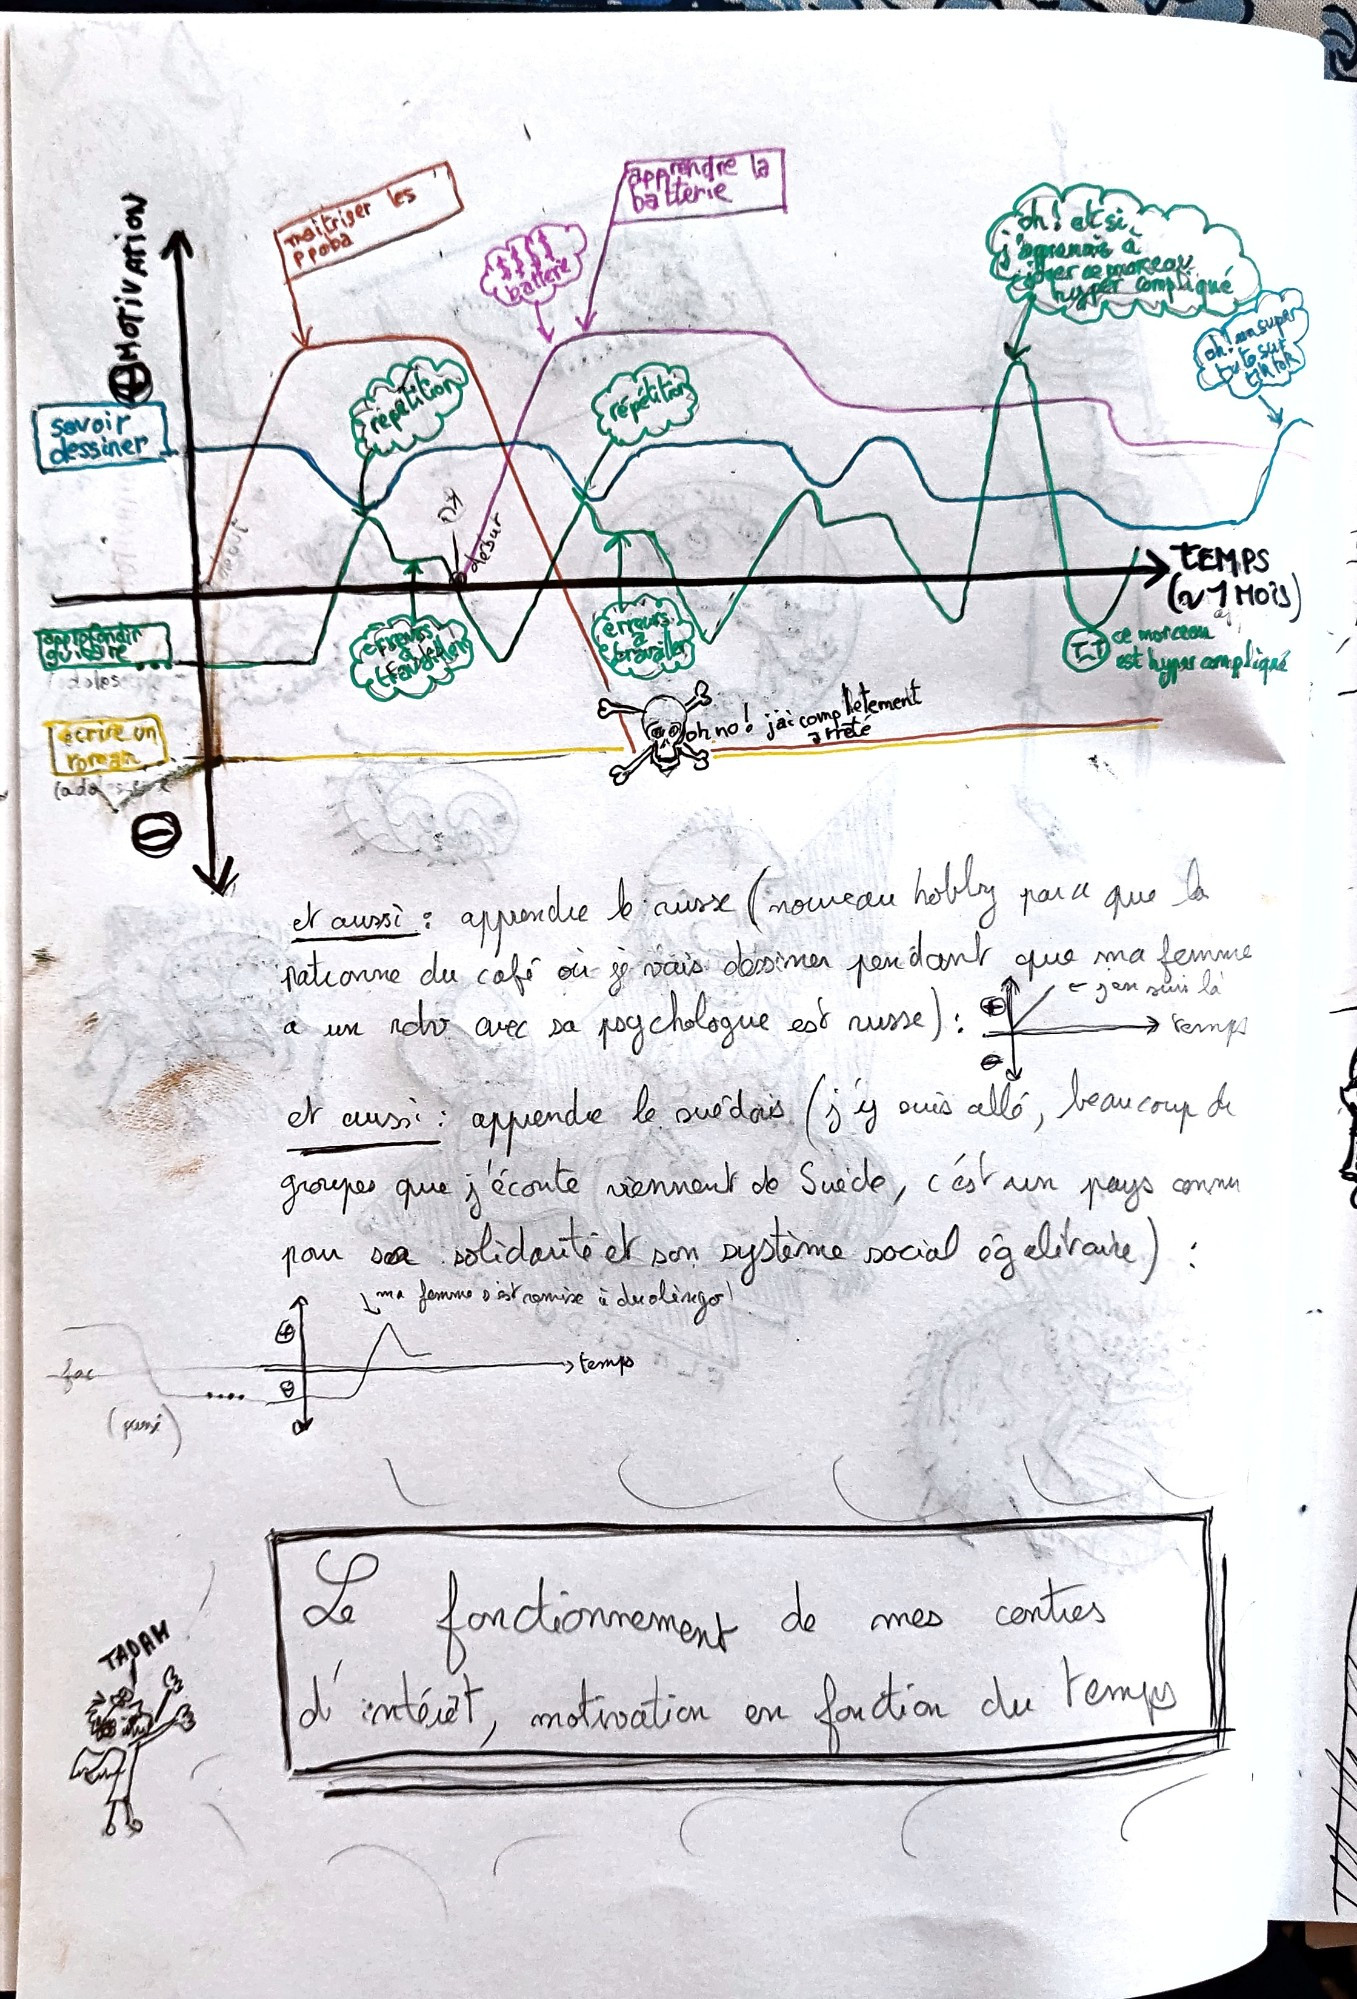 maîtriser les
proba
apprendre la
batterie
MOTIVATION
+
$$$$
batterie
oh! et si
j'apprenais à
jouer ce morceau
hyper compliqué
oh! un super
tuto sur
tiktok
savoir
dessiner
répétition
répétition
début
TEMPS
(~1 MOIS)
approfondir
guitare ...
erreurs
à
travailler
erreurs
à
travailler
T_T
ce morceau
est hyper compliqué
écrire un
roman
oh no! j'ai complètement
arrêté
-
et aussi : apprendre le russe (nouveau hobby parce que la
patronne du café où je vais dessiner pendant que ma femme
a un rdv avec sa psychologue est russe) :
+
← j'en suis là
temps
-
et aussi : apprendre le suédois (j'y suis allé, beaucoup de
groupes que j'écoute viennent de Suède, c'est un pays connu
pour sa solidarité et son système social égalitaire) :
ma femme s'est remise à duolingo!
+
temps
fac
-
(passé)
Le fonctionnement de mes centres
d'intérêt, motivation en fonction du temps
TADAM